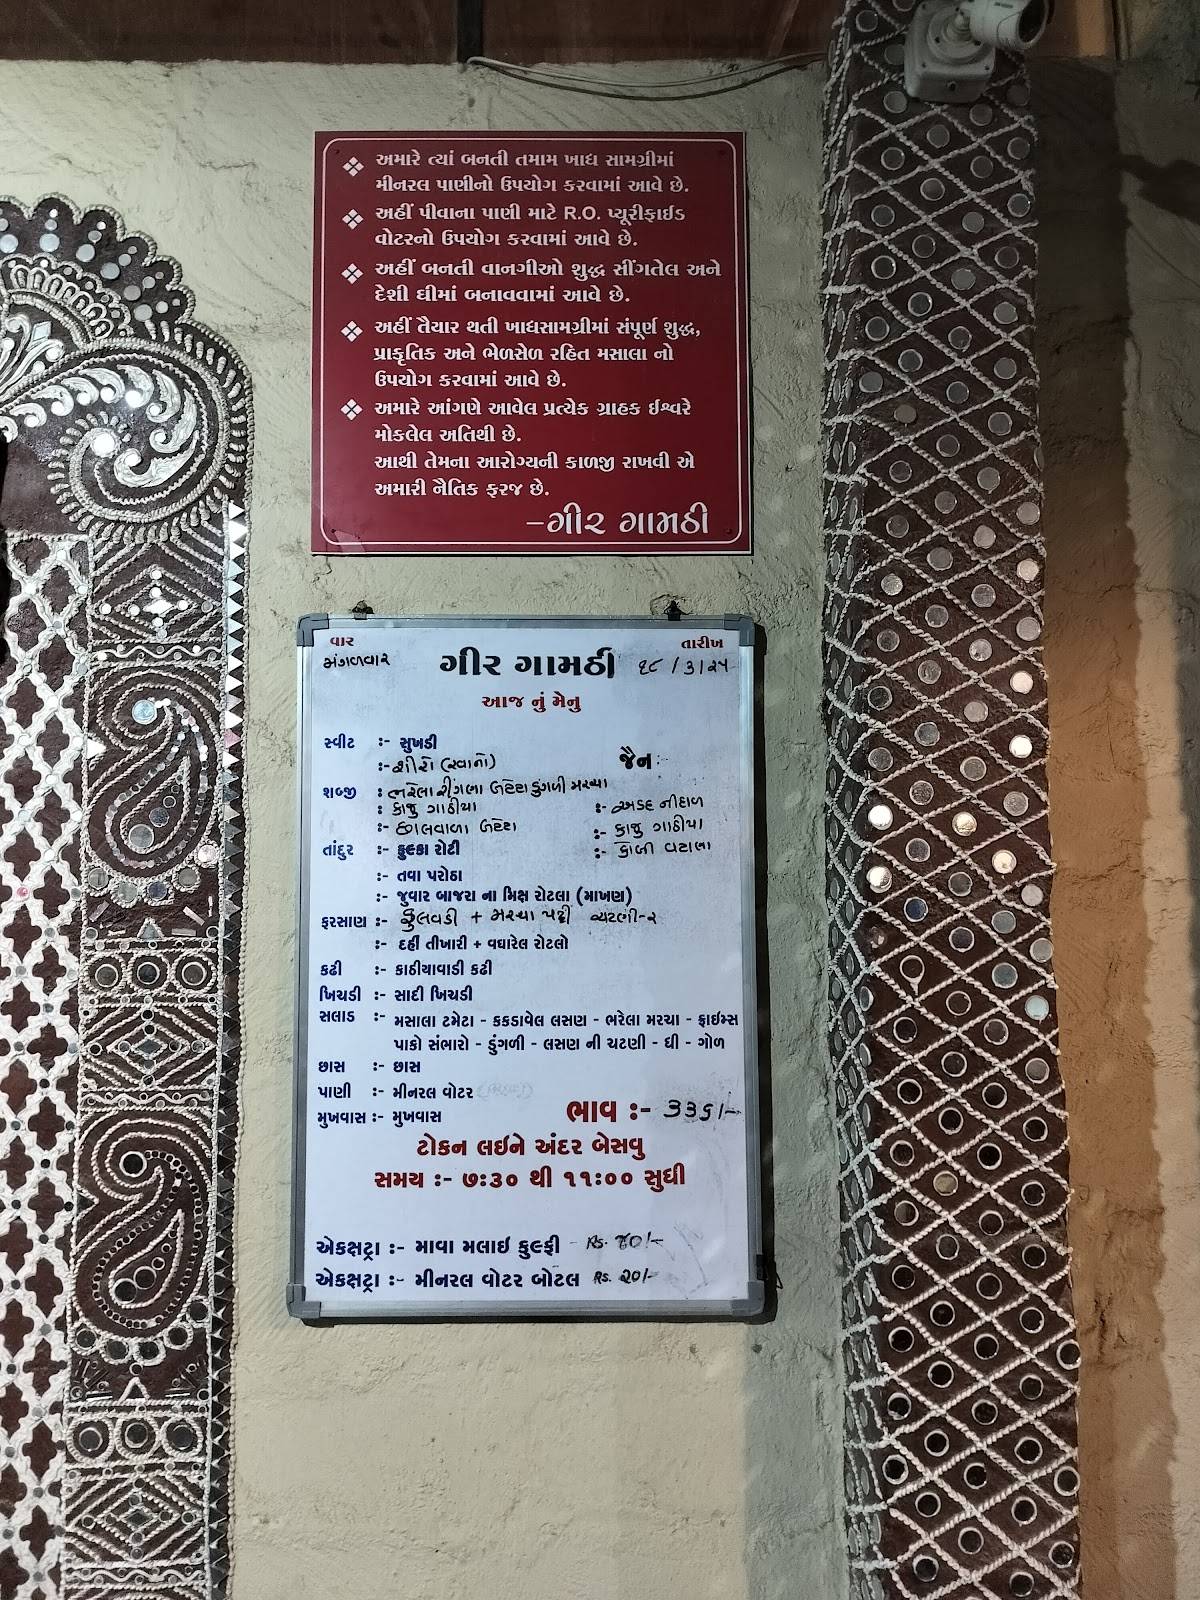 ❖ અમારે ત્યાં બનતી તમામ ખાદ્ય સામગ્રીમાં
મીનરલ પાણીનો ઉપયોગ કરવામાં આવે છે.
❖ અહીં પીવાના પાણી માટે R.O. પ્યૂરીફાઈડ
વોટરનો ઉપયોગ કરવામાં આવે છે.
❖ અહીં બનતી વાનગીઓ શુદ્ધ સીંગતેલ અને
દેશી ઘીમાં બનાવવામાં આવે છે.
❖ અહીં તૈયાર થતી ખાદ્યસામગ્રીમાં સંપૂર્ણ શુદ્ધ,
પ્રાકૃતિક અને ભેળસેળ રહિત મસાલા નો
ઉપયોગ કરવામાં આવે છે.
❖ અમારે આંગણે આવેલ પ્રત્યેક ગ્રાહક ઈશ્વરે
મોકલેલ અતિથી છે.
આથી તેમના આરોગ્યની કાળજી રાખવી એ
અમારી નૈતિક ફરજ છે.
-ગીર ગામઠી
વાર તારીખ
મંગળવાર ગીર ગામઠી ૧૮/૩/૨૫
આજ નું મેનુ
સ્વીટ :- સુખડી
:- શીરો (રવાનો) જૈન:
શબ્જી : ભરેલા રીંગણા બટેટા ડુંગળી મરચા
: કાજુ ગાઠીયા :- અડદ નીદાળ
:- છાલવાળા બટેટા :- કાજુ ગાઠીયા
તાંદુર :- ફુલ્કા રોટી :- કોબી વટાણા
:- તવા પરોઠા
:- જુવાર બાજરા ના મિક્ષ રોટલા (માખણ)
ફરસાણ :- ફુલવડી + મરચા પટ્ટી ચટણી-૨
:- દહીં તીખારી + વઘારેલ રોટલો
કઢી :- કાઠીયાવાડી કઢી
ખિચડી :- સાદી ખિચડી
સલાડ :- મસાલા ટમેટા - કકડાવેલ લસણ - ભરેલા મરચા - ફ્રાઈમ્સ
પાકો સંભારો - ડુંગળી - લસણ ની ચટણી - ઘી - ગોળ
છાસ :- છાસ
પાણી :- મીનરલ વોટર
મુખવાસ :- મુખવાસ ભાવ :- ૩૩૬/-
ટોકન લઇને અંદર બેસવુ
સમય :- ૭:૩૦ થી ૧૧:૦૦ સુધી
એકક્ષટ્રા :- માવા મલાઇ કુલ્ફી - Rs. ૪૦/-
એકક્ષટ્રા :- મીનરલ વોટર બોટલ Rs. ૨૦/-